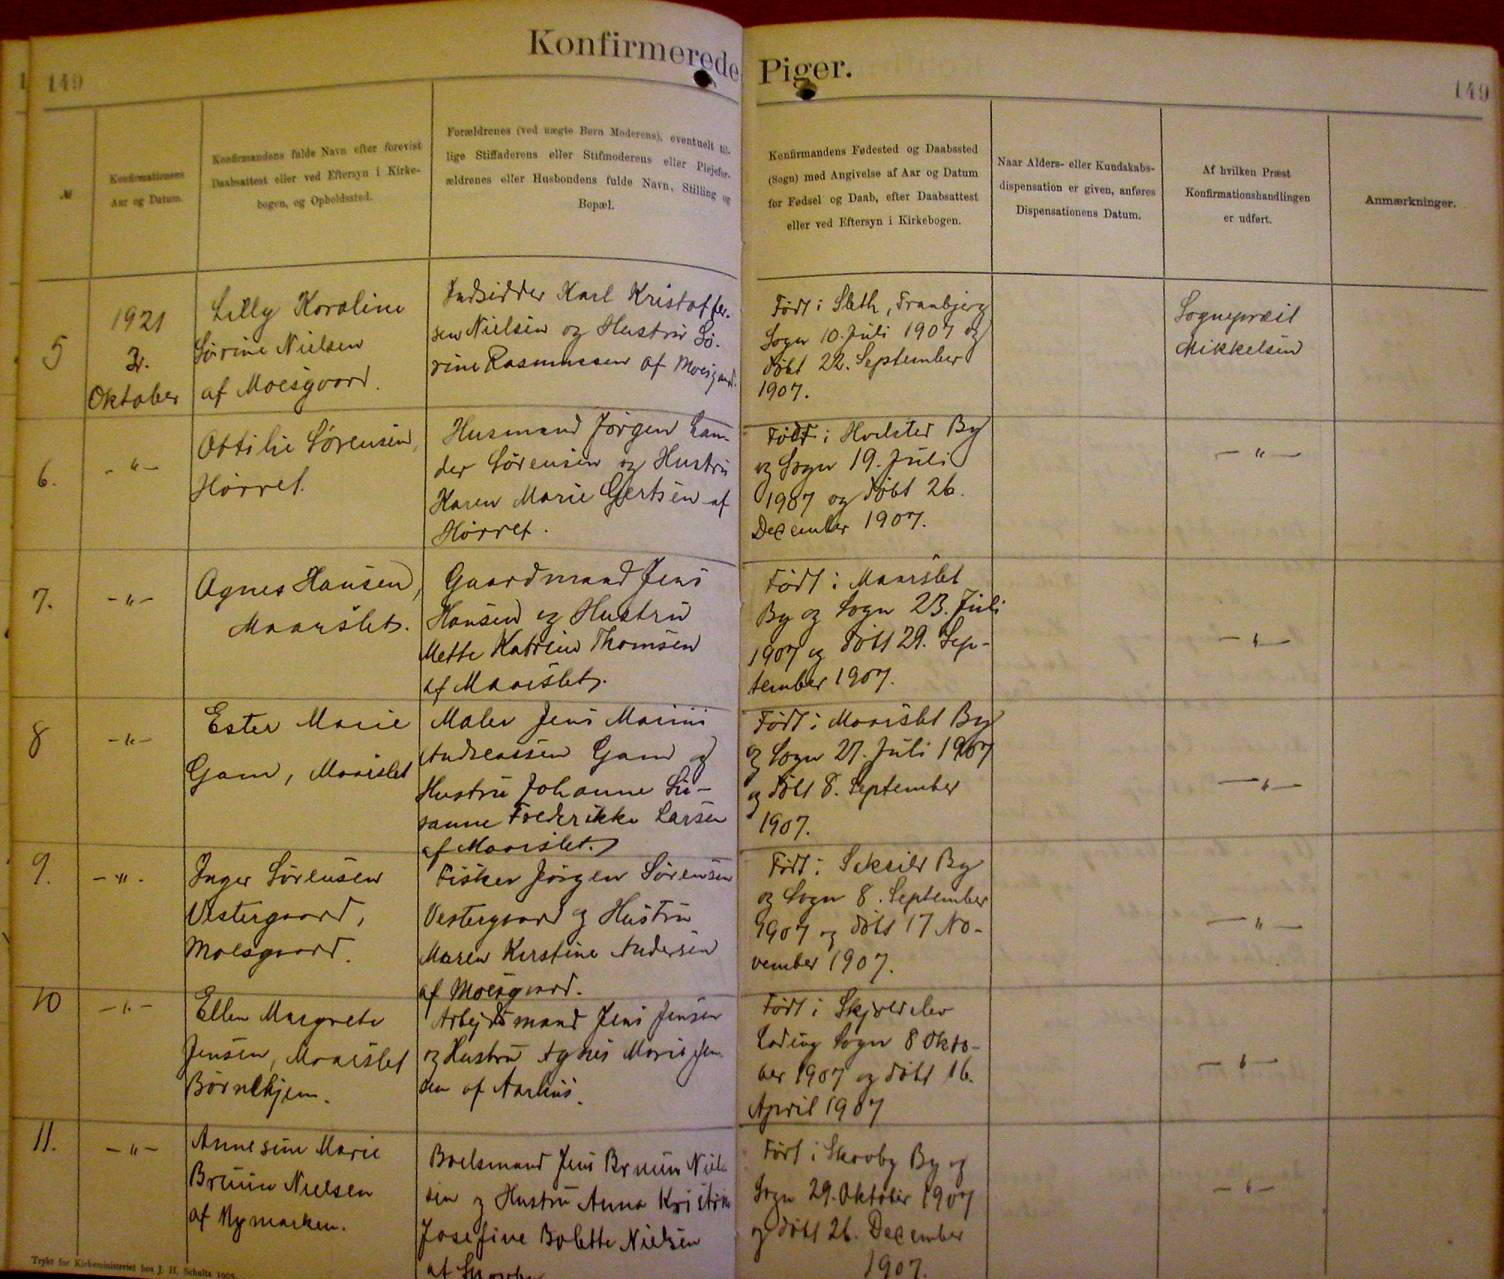 Konfirmerede Piger.
149
149
№
Konfirmationens
Aar og Datum.
Konfirmandens fulde Navn efter forevist
Daabsattest eller ved Eftersyn i Kirke-
bogen, og Opholdssted.
Forældrenes (ved uægte Børn Moderens), eventuelt til-
lige Stiffaderens eller Stifmoderens eller Plejefor-
ældrenes eller Husbondens fulde Navn, Stilling og
Bopæl.
Konfirmandens Fødested og Daabssted
(Sogn) med Angivelse af Aar og Datum
for Fødsel og Daab, efter Daabsattest
eller ved Eftersyn i Kirkebogen.
Naar Alders- eller Kundskabs-
dispensation er given, anføres
Dispensationens Datum.
Af hvilken Præst
Konfirmationshandlingen
er udført.
Anmærkninger.
5
1921
2.
Oktober
Lilly Koraline
Sørine Nielsen
af Moesgaard.
Indsidder Karl Kristoffer-
sen Nielsen og Hustru Sø-
rine Rasmussen af Moesgaard.
Født i Sleth, Tranbjerg
Sogn 10. Juli 1907 og
døbt 22. September
1907.
Sognepræst
Mikkelsen
6.
-"-
Ottilie Sørensen,
Hørret.
Husmand Jørgen Lan-
der Sørensen og Hustru
Karen Marie Gjertsen af
Hørret.
Født i Hvilsted By
og Sogn 19. Juli
1907 og døbt 26.
December 1907.
-"-
7.
-"-
Agnes Hansen,
Maarslet.
Gaardmand Jens
Hansen og Hustru
Mette Katrine Thomsen
af Maarslet.
Født i Maarslet
By og Sogn 23. Juli
1907 og døbt 29. Sep-
tember 1907.
-"-
8
-"-
Ester Marie
Gam, Maarslet
Maler Jens Marius
Andreassen Gam og
Hustru Johanne Su-
sanne Frederikke Larsen
af Maarslet.
Født i Maarslet By
og Sogn 27. Juli 1907
og døbt 8. September
1907.
-"-
9.
-"-
Inger Sørensen
Vestergaard,
Moesgaard.
Fisker Jørgen Sørensen
Vestergaard og Hustru
Maren Kirstine Andersen
af Moesgaard.
Født i By
og Sogn 8. September
1907 og døbt 17 No-
vember 1907.
-"-
10
-"-
Ellen Margrete
Jensen, Maarslet
Børnehjem.
Arbejdsmand Jens Jensen
og Hustru Agnes Marie Jen-
sen af Aarhus.
Født i Skjoldelev
Lading Sogn 8 Okto-
ber 1907 og døbt 16.
April 1907
-"-
11.
-"-
Annesine Marie
Bruun Nielsen
af Nymarken.
Boelsmand Jens Bruun Niel-
sen og Hustru Anna Kristine
Josefine Bolette Nielsen
af
Født i Skovby By og
Sogn 29. Oktober 1907
og døbt 26. December
1907.
-"-
Trykt for Kirkeministeriet hos J. H. Schultz